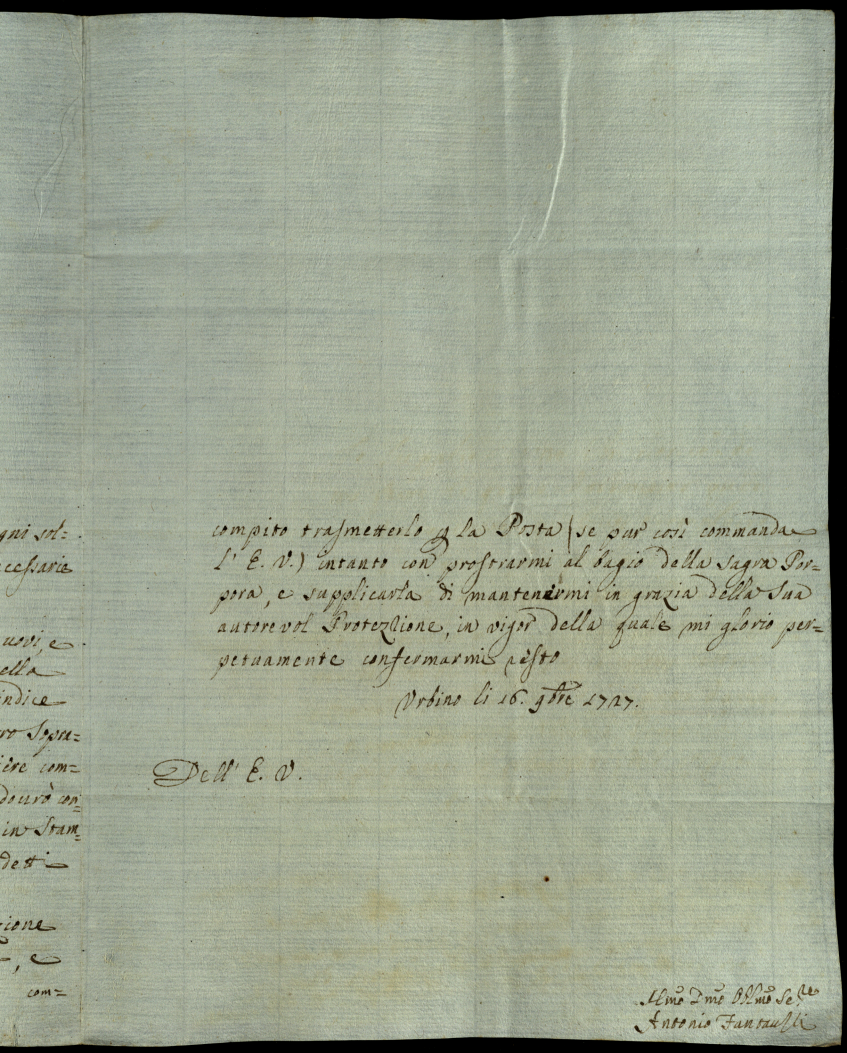 gni sol=
cessarie
uovi, e
ella
indice
ro sopra=
iere com=
dovrò con=
in Stam=
detti
zione
, e
com=
compito trasmetterlo p la Posta (se pur così commanda
l' E. V.) intanto con prostrarmi al bagio della sagra Por=
pora, e supplicarla di mantenermi in grazia della Sua
autorevol Protezzione, in vigor della quale mi glorio per=
petuamente confermarmi resto
Urbino li 16. 9bre 1727.
Dell' E. V.
Umo Dmo Obbmo Sere
Antonio Fantaussi